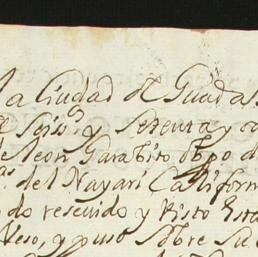 la Ciudad de Guadas
Seisos y setenta y oc
de leon Garabito obpo d
s. del Nayari Californ
do resevido y visto esta
Veso, y puso sobre su